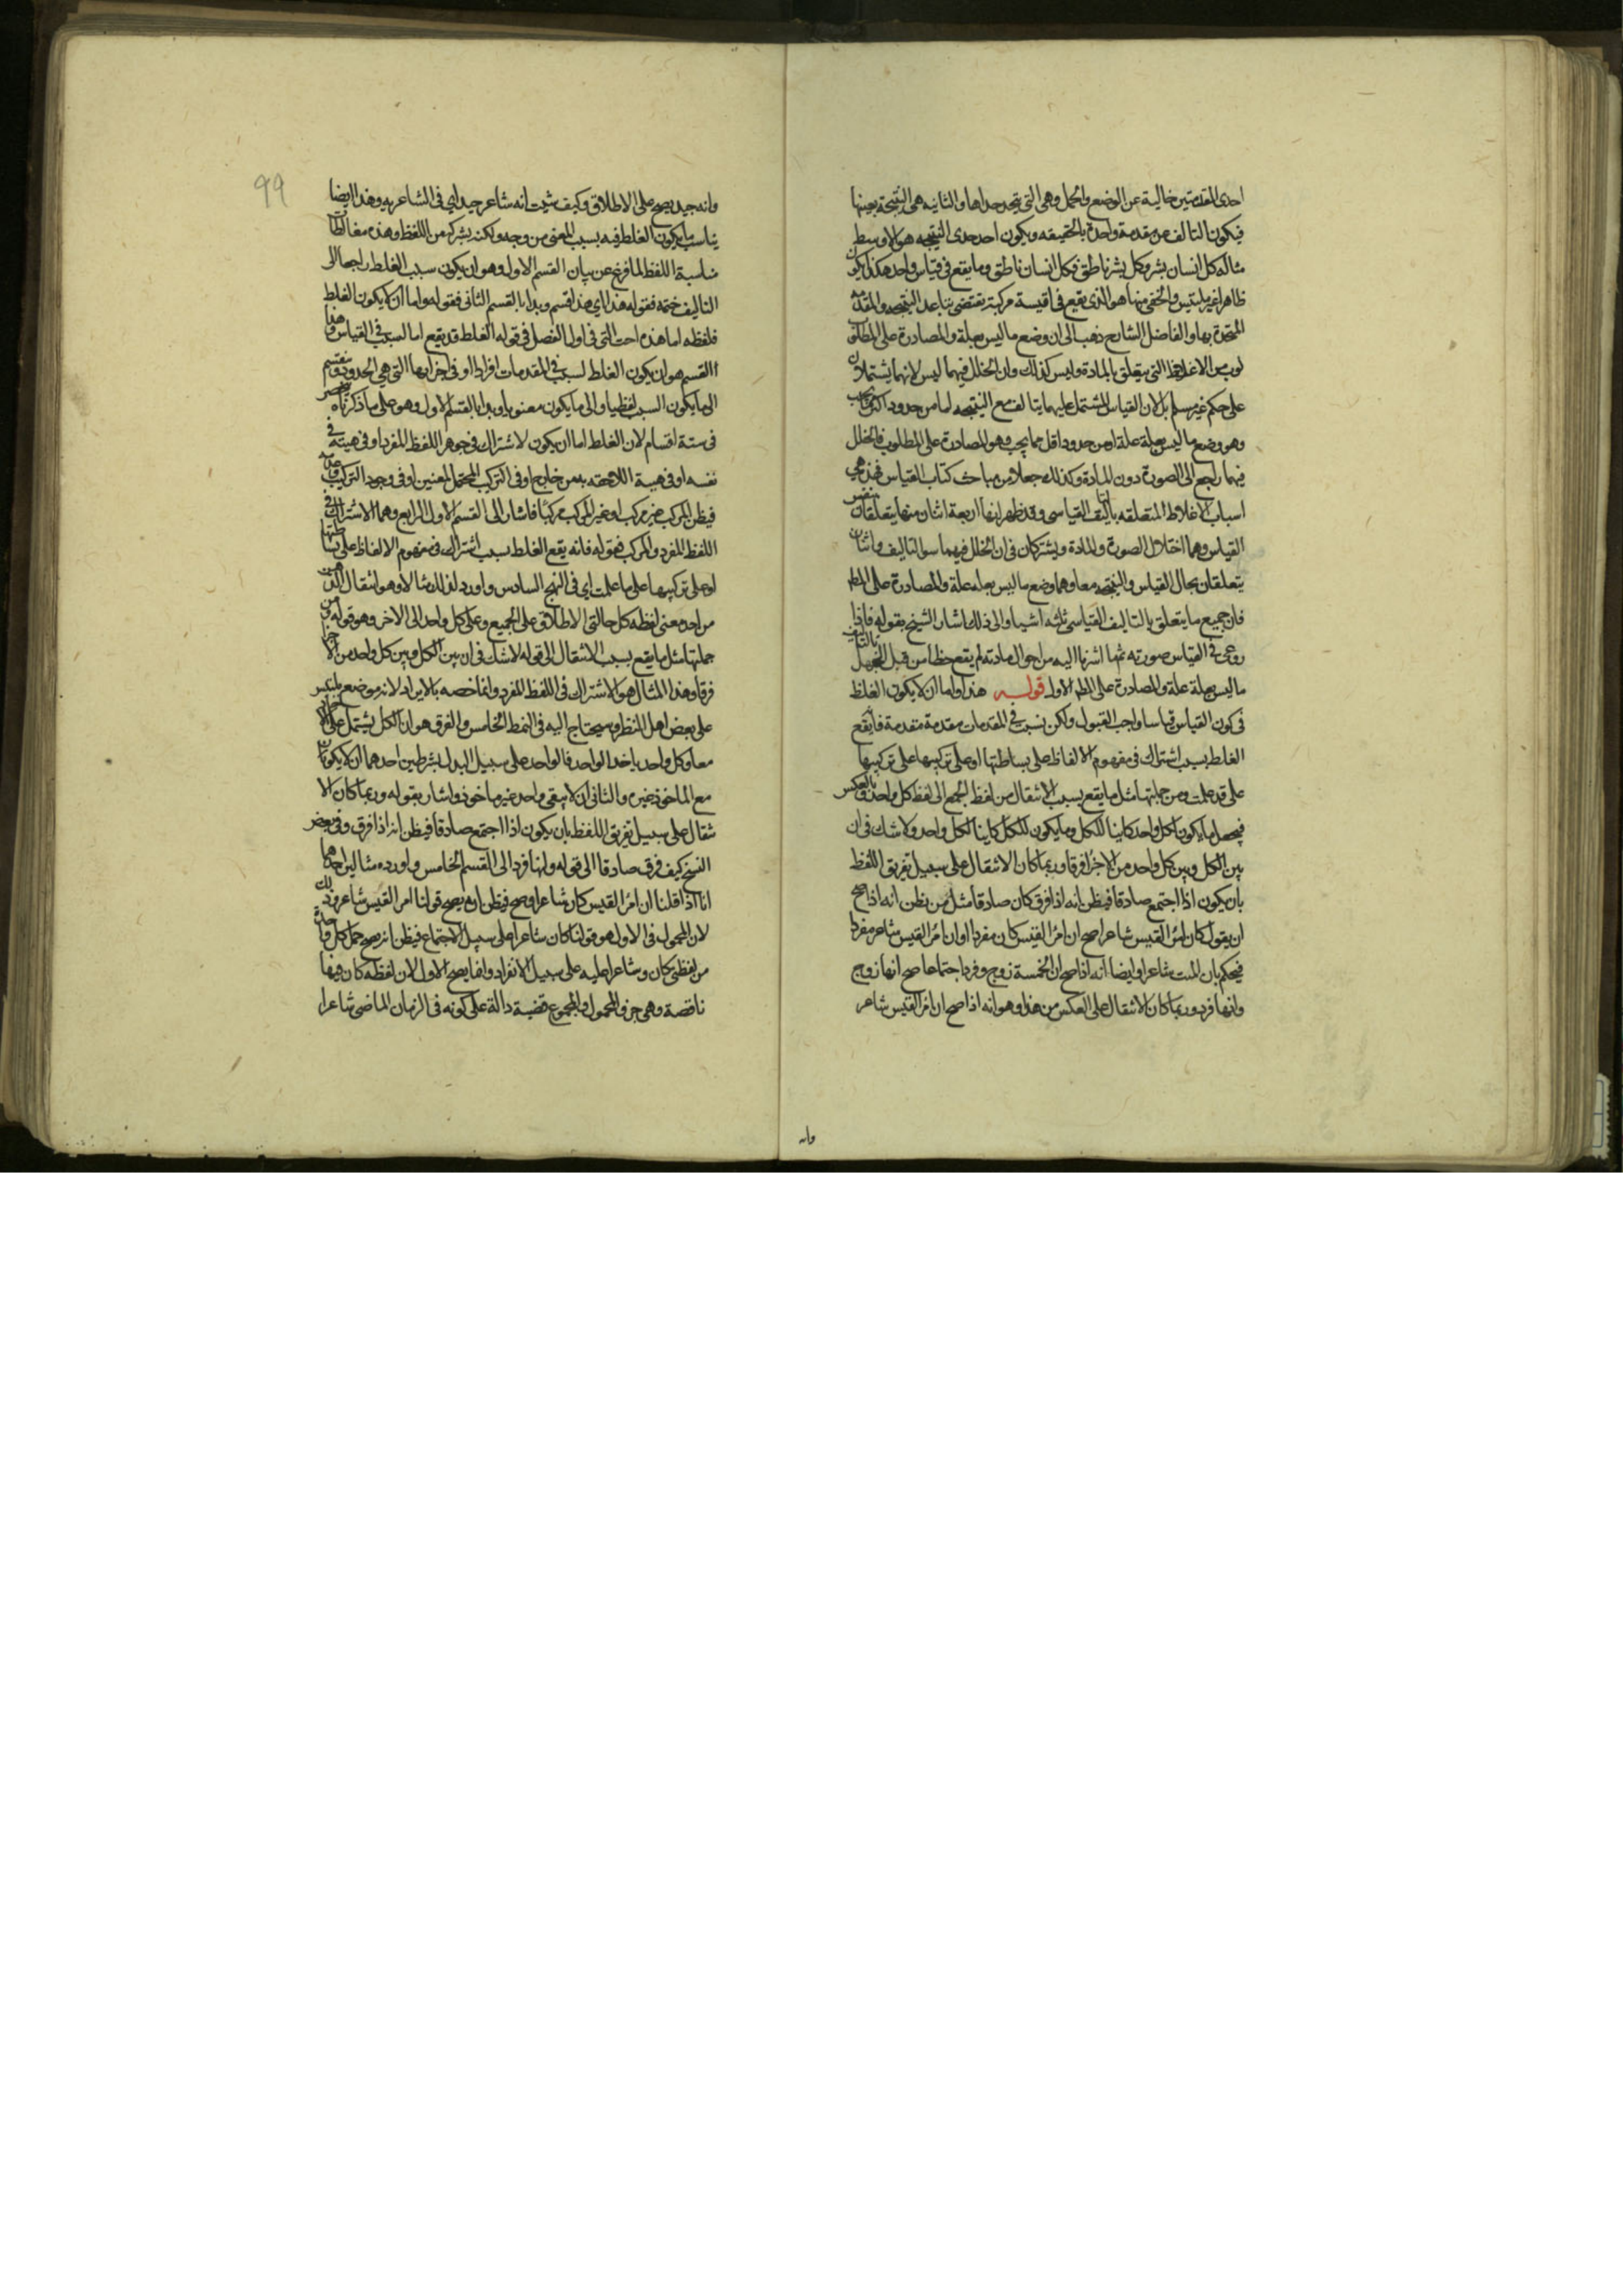 احدى المقدمتين خالية عن الوضع والحمل وهي التي يتحد حداها والثانيه هي النتيجة بعينها
فيكون التالف من مقدمة واحدة بالحقيقه ويكون احد حدى النتيجه هو الاوسط
مثاله كل انسان بشر وكل بشر ناطق فكل انسان ناطق وما يقع في قياس واحد هكذا يكون
ظاهرا غير ملتبس والخفي منها هو الذي يقع في اقيسة مركبة تقتضي تباعد النتيجه والمقدمه
المتحدة بها والفاضل الشارح ذهب الى ان وضع ما ليس بعلة والمصادرة على المطلوب
من الاغلاط التي يتعلق بالمادة وليس كذلك وان الخلل فيهما ليس لانهما يشتملان
على حكم غير مسلم بل لان القياس المشتمل عليهما يتالف مع النتيجه اما من حدود اكثر مما يجب
وهو وضع ما ليس بعلة علة او من حدود اقل مما يجب وهو المصادرة على المطلوب فالخلل
فيهما راجع الى الصورة دون المادة وكذلك جعلا من مباحث كتاب القياس فهذه هي
اسباب الاغلاط المتعلقه بالتاليف القياسي وقد ظهر انها اربعة اثنان منها يتعلقان بنفس
القياس وهما اختلال الصورة والمادة ويشتركان في ان الخلل فيهما سوء التاليف واثنان
يتعلقان بحال القياس والنتيجه معا وهما وضع ما ليس بعله علة والمصادرة على المط
فان جميع ما يتعلق بالتاليف القياسي ثلثه اشياء والى ذلك اشار الشيخ بقوله فاذا
روعى في القياس صورته ثم ما اشرنا اليه من احوال مادته لم يقع خطا من قبل الجهل بالتاليف
ما ليس بعلة علة والمصادرة على المط الاول قوله هذا واما ان لا يكون الغلط
في كون القياس قياسا واجب القبول ولكن بسبب في المقدمات مقدمة مقدمة فانه يقع
الغلط بسبب اشتراك في مفهوم الالفاظ على بساطتها او على تركيبها على تركيبها
على قد علمت ومن جملتها مثل ما يقع بسبب الانتقال من لفظ الجمع الى لفظ كل واحد وبالعكس
فيجعل ما يكون لكل واحد كاينا للكل وما يكون للكل كاينا لكل واحد ولا شك في ان
بين الكل وبين كل واحد من الاجزا فرقا وربما كان الانتقال على سبيل تفريق اللفظ
بان يكون اذا اجتمع صادقا فيظن انه اذا فرق كان صادقا مثل من يظن انه اذا صح
ان يقول كان امرؤ القيس شاعرا صح ان امرؤ القيس كان مفردا او ان امرؤ القيس شاعر مفردا
فيحكم بان الميت شاعر وايضا انه اذا صح ان الخمسة زوج وفرد اجتماعا صح انها زوج
وانها فرد وربما كان الانتقال على العكس من هذا وهو انه اذا صح ان امرؤ القيس شاعر
وانه
99
وانه جيد يصح على الاطلاق وكيف شيت انه شاعر جيد اي في الشاعريه وهذا ايضا
يناسب ما يكون الغلط فيه بسبب المعنى من وجه ولكنه يشركه من اللفظ وهذه مغالطات
مناسبة اللفظ لما فرغ عن بيان القسم الاول وهو ان يكون سبب الغلط راجعا الى
التاليف ختمه فقوله هذا اي هذا قسم وبدا بالقسم الثاني فقوله واما ان لا يكون الغلط
فلفظه اما هذه اخت التي في اول الفصل في قوله الغلط قد يقع اما لسبب في القياس وهذا
القسم هو ان يكون الغلط لسبب في المقدمات افرادا او في اجزايها التي هي الحدود وينقسم
الى ما يكون السبب لفظيا والى ما يكون معنويا وبدا بالقسم الاول وهو على ما ذكرناه ينحصر
في ستة اقسام لان الغلط اما ان يكون لاشتراك في جوهر اللفظ المفرد او في هيئته في
نفسه او في هيئة اللاحقه به من خارج او في التركيب المحتمل لمعنيين او في وجود التركيب وعدمه
فيظن المركب غير مركب او غير المركب مركبا فاشار الى القسم الاول والرابع وهما الاشتراك في
اللفظ المفرد والمركب بقوله فانه يقع الغلط بسبب اشتراك في مفهوم الالفاظ على بساطتها
او على تركيبها على ما علمت اي في النهج السادس واورد لذلك مثالا وهو انتقال الذهن
من احد معنى لفظه كل حالتي الاطلاق على الجميع وعلى كل واحد الى الاخر وهو قوله ومن
جملتها مثل ما يقع بسبب الانتقال الى قوله لا شك في ان بين الكل وبين كل واحد من الاجزا
فرقا وهذا المثال هو الاشتراك في اللفظ المفرد وانما خصه بالايراد لانه موضع يلتبس
على بعض اهل النظر وسيحتاج اليه في النمط الخامس والفرق هو ان الكل يشتمل على الاجزا
معا وكل واحد ياخذ الواحد فالواحد على سبيل البدل بشرطين احدهما ان لا يكون
مع الماخوذ غيره والثاني ان لا يبقى واحد غير ماخوذ واشار بقوله وربما كان الا
نتقال على سبيل تفريق اللفظ بان يكون اذا اجتمع صادقا فيظن انه اذا فرق وفي بعض
النسخ كيف فرق صادقا الى قوله وانها فرد الى القسم الخامس واورده مثالين احدهما
انا اذا قلنا ان امرؤ القيس كان شاعرا وصح فيظن انه يصح قولنا امرؤ القيس شاعر وذلك
لان المحمول في الاول هو قولنا كان شاعرا على سبيل الاجتماع فيظن انه يصح حمل كل واحدة
من لفظتي كان وشاعرا عليه على سبيل الانفراد وانما يصح الاول لان لفظه كان فيها
ناقصة وهي جزو المحمول والمجموع قضية دالة على كونه في الزمان الماضي شاعرا